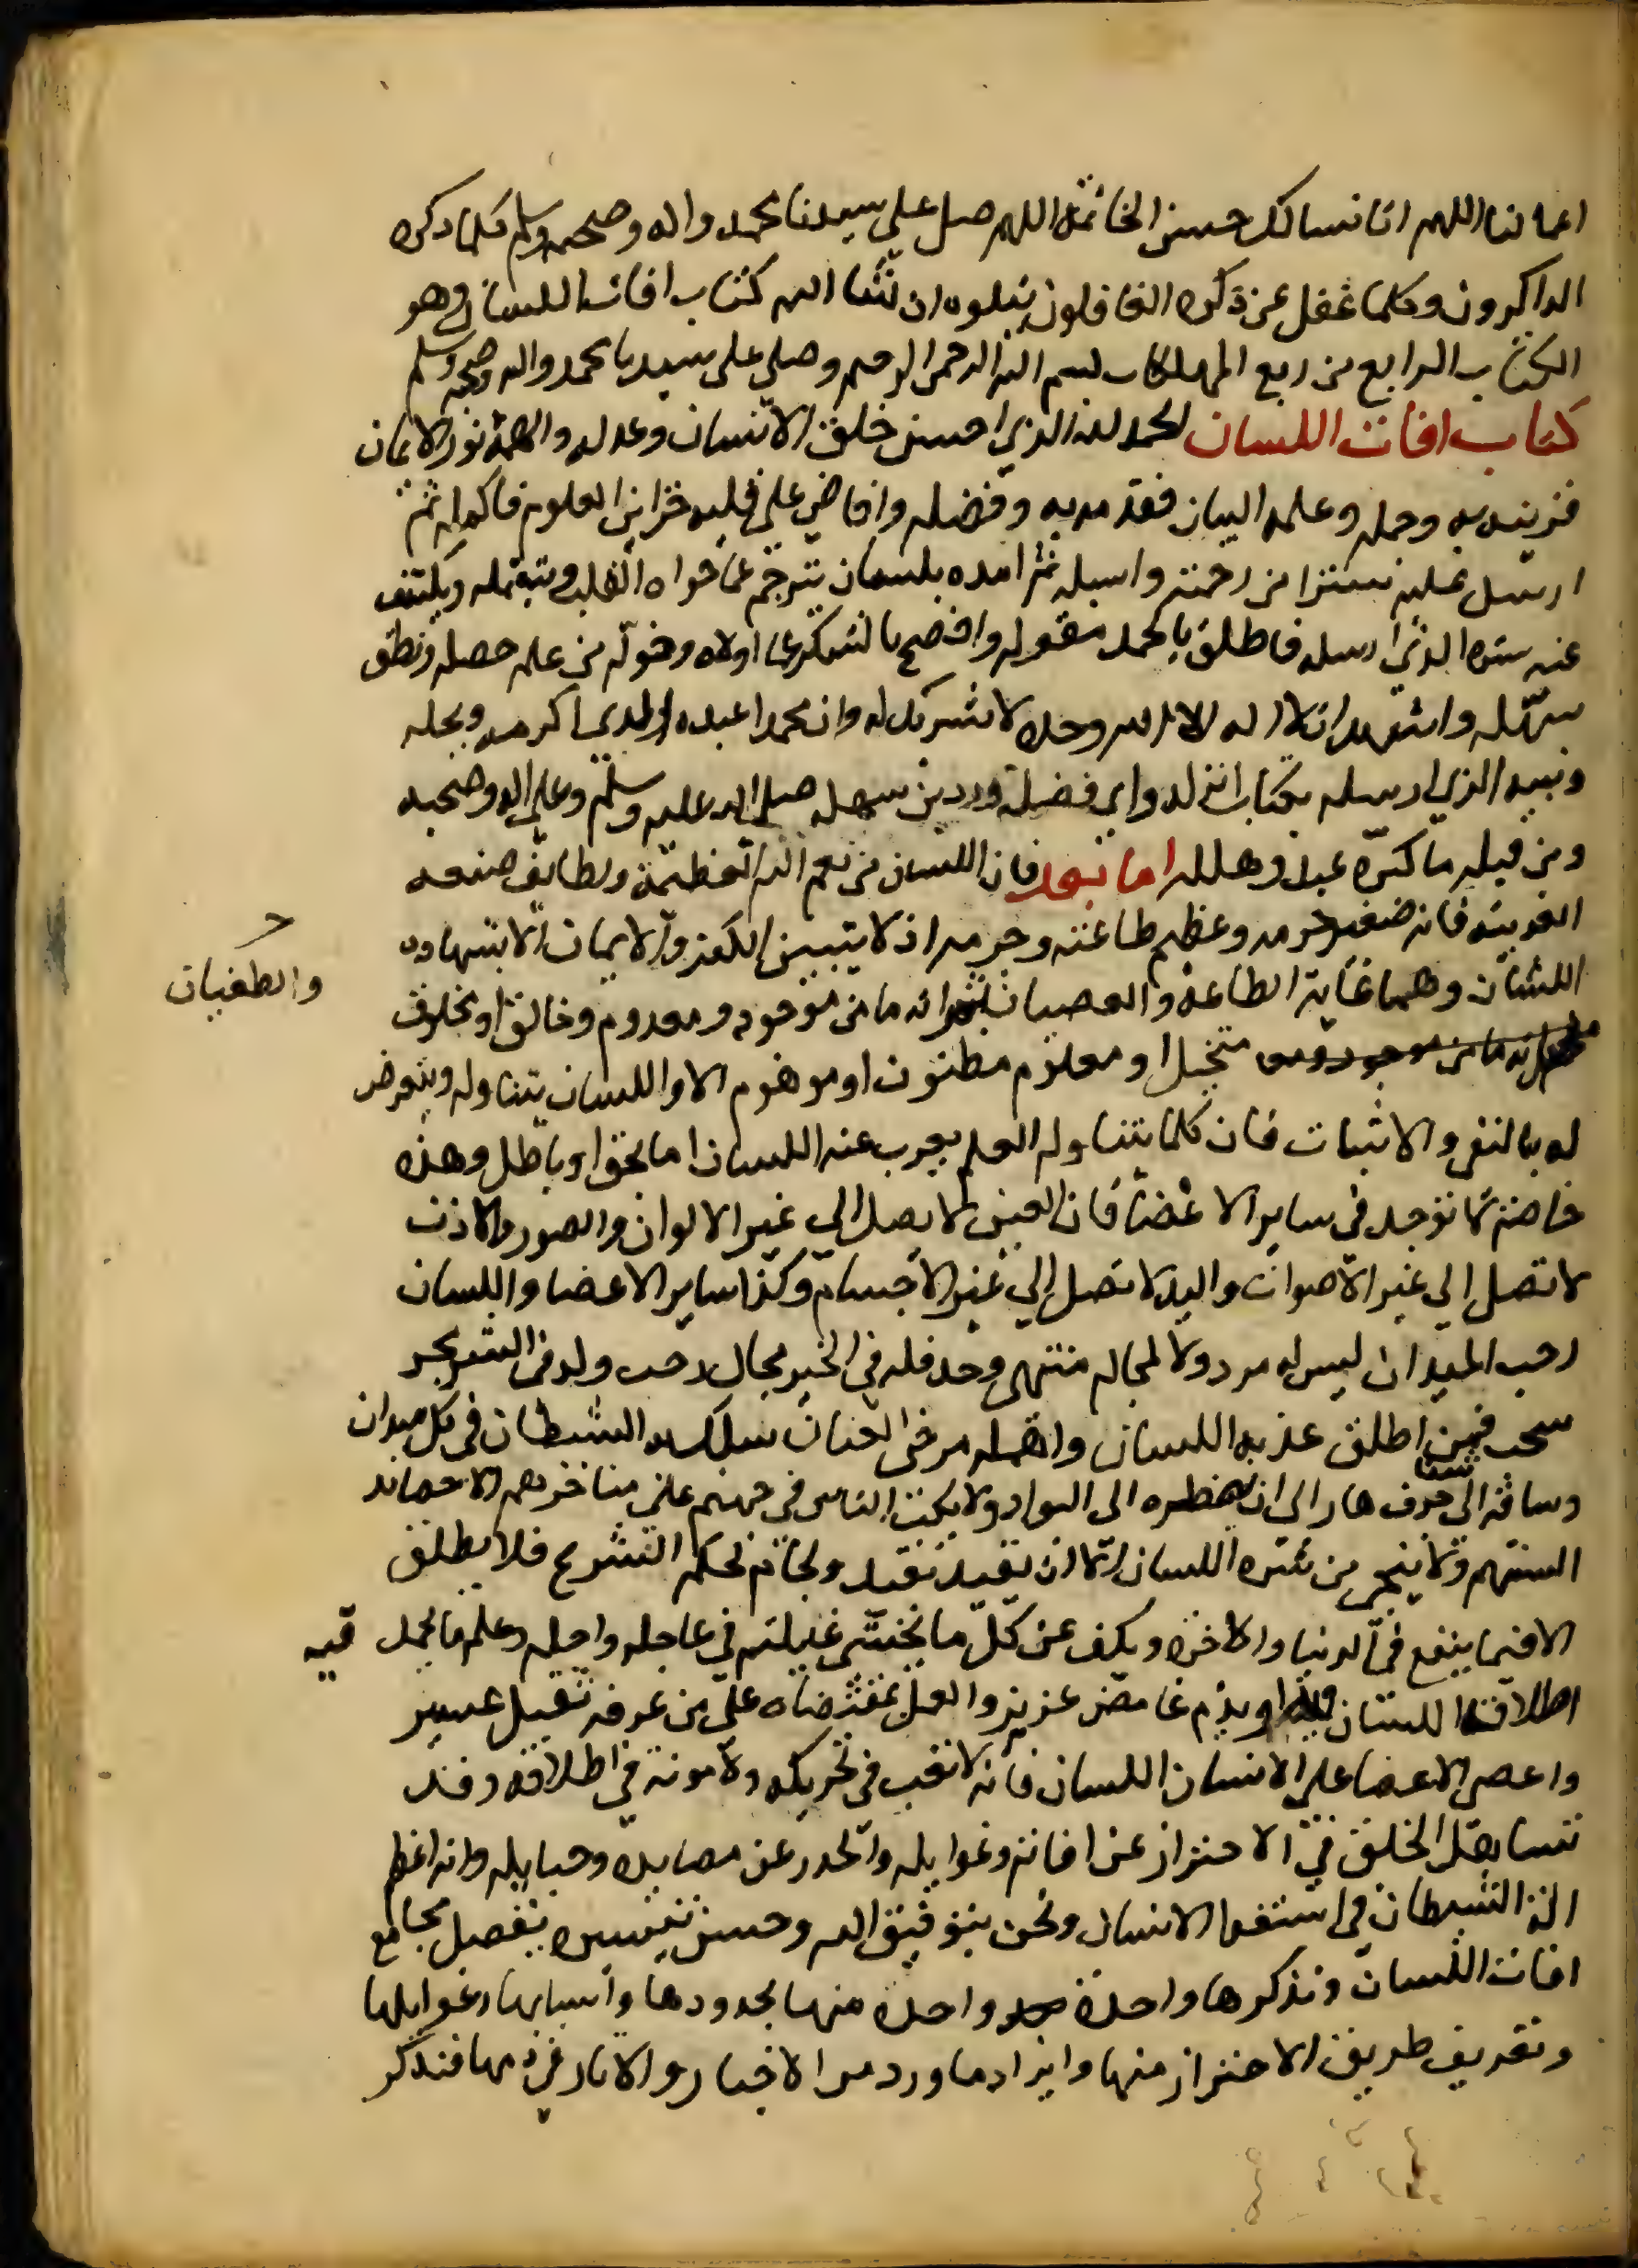 اعمالنا اللهم انا نسالك حسن الخاتمة اللهم صل على سيدنا محمد واله وصحبه وسلم كلما ذكره
الذاكرون وكلما غفل عن ذكره الغافلون يتلوه ان شا الله كتاب افات اللسان وهو
الكتاب الرابع من ربع المهلكات بسم الله الرحمن الرحيم وصلى على سيدنا محمد واله وصحبه وسلم
كتاب افات اللسان الحمد لله الذي احسن خلق الانسان وعدله والهمه نور الايمان
فزينه به وجمله وعلمه البيان فقدمه به وفضله وافاض على قلبه خزاين العلوم فاكمله ثم
ارسل عليه سترا من رحمته واسبله ثم امده بلسان يترجم عما حواه القلب وعقله ويكشف
عنه ستره الذي ارسله فاطلق بالحمد مقوله وافصح بالشكر عما اولاه وخوله من علم حصله ونطق
سهله واشهد ان لا اله الا الله وحده لا شريك له وان محمدا عبده الذي اكرمه وبجله
ونبيه الذي ارسله بكتاب انزله واي فضله ودين سهله صلى الله عليه وسلم وعلى اله وصحبه
ومن قبله ما كبر عبد وهلله اما بعد فان اللسان من نعم الله العظيمة ولطايف صنعه
الغريبة فانه صغير جرمه وعظيم طاعته وجرمه اذ لا يتبين الكفر والايمان الا بشهادة
اللسان وهما غاية الطاعة والعصيان ثم انه ما من موجود ومعدوم وخالق او مخلوق
والطغيان
متخيل او معلوم مظنون او موهوم الا واللسان يتناوله ويتعرض
له بالنفي والاثبات فان كلما يتناوله العلم يعرب عنه اللسان اما بحق او باطل وهذه
خاصة لا توجد في ساير الاعضا فان العين لا تصل الى غير الالوان والصور والاذن
لا تصل الي غير الاصوات واليد لا تصل الي غير الاجسام وكذا ساير الاعضا واللسان
رحب الميدان ليس له مرد ولا لمجاله منتهى وحد فله في الخير مجال رحب وله في الشر بحر
سحب فمن اطلق عذبة اللسان واهمله مرخى العنان سلك به الشيطان في كل ميدان
وساقه الى شفا جرف هار الى ان يضطره الى البوار ولا يكب الناس في جهنم على مناخرهم الا حصائد
السنتهم ولا ينجي من شره اللسان الا ان يقيد بقيد ولجام لحكم الشرع فلا يطلق
الا فيما ينفع في الدنيا والاخره ويكف عن كل ما يخشى غايلته في عاجله واجله وعلم ما يحمد فيه
اطلاق اللسان او يذم غامض عزيز والعمل بمقتضاه على من عرفه ثقيل عسير
واعصى الاعضا على الانسان اللسان فانه لا تعب في تحريكه ولا مونة في اطلاقه وقد
تساهل الخلق في الاحتراز عن افاته وغوايله والحذر عن مصايده وحبايله وانه اعظم
الة الشيطان في استغوا الانسان ونحن بتوفيق الله وحسن تيسيره نفصل مجامع
افات اللسان ونذكرها واحدة واحدة منها بحدودها واسبابها وغوايلها
وتعريف طريق الاحتراز منها وايراد ما ورد من الاخبار والاثار في ذمها فنذكر